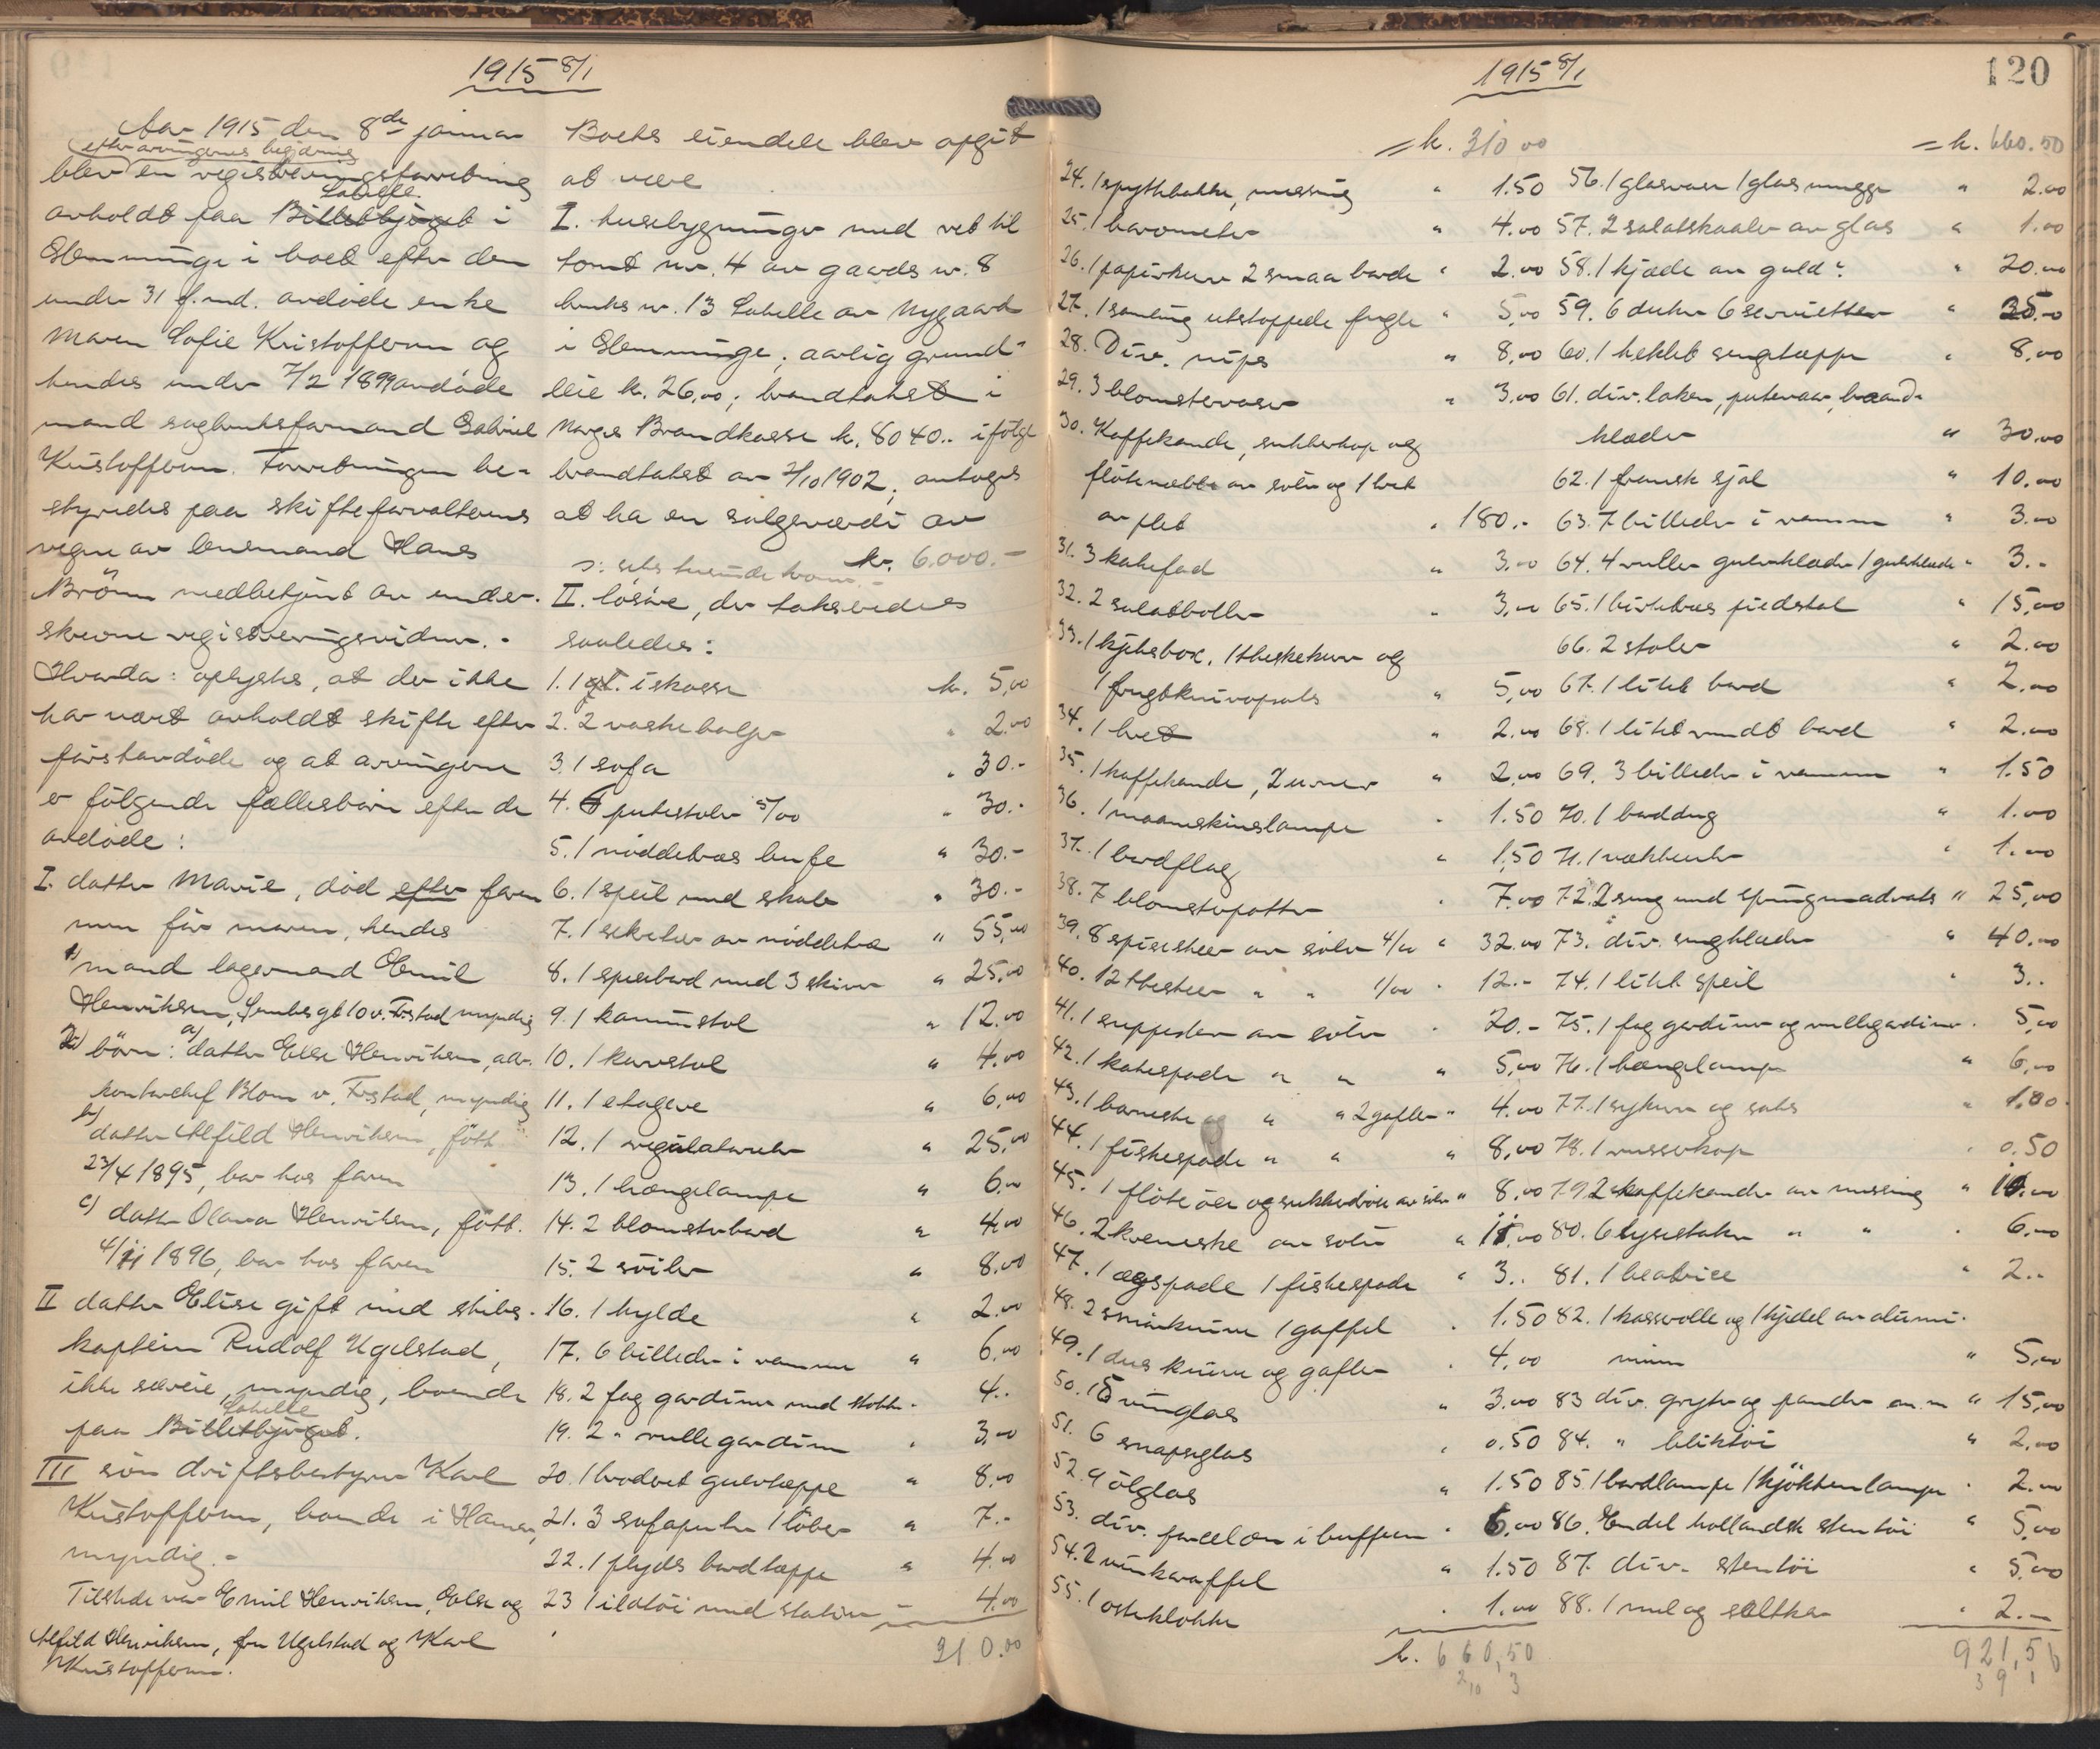 1915 8/1
Aar 1915 den 8de januar
efter arvingernes begjæring
blev en registreringsforretning
Labelle
avholdt paa Billetbjerget i
Glemminge i boet efter den
under 31 f. md. avdøde enke
Maren Sofie Kristoffersen og
hendes under 7/2 1899 avdøde
mand sagbruksformand Gabriel
Kristoffersen. Forretningen be-
styredes paa skifteforvalterens
vegne av lensmand Hans
Brönn medbetjent av under-
skrevne registreringsvidner. -
Hvorda: oplystes, at der ikke
har vært avholdt skifte efter
førstavdøde og at arvingerne
er følgende fællesbørn efter de
avdøde:
I. datter Marie, død efter faren
men før moren, hendes
1) mand lagermand Emil
Henriksen, gt 10 v. F.stad myndig
2) børn: a) datter Else Henriksen, adr.
kontorchef Blom v. F.stad, myndig
b) datter Alfild Henriksen, født
23/4 1895, bor hos faren
c) datter Olava Henriksen, født
4/11 1896, bor hos faren
II datter Elise gift med skibs-
kaptein Rudolf Ugelstad,
ikke særeie, myndig, boende
Labelle
paa Billetbjerget.
III søn driftsbestyrer Karl
Kristoffersen, boende i Hamar,
myndig. -
Tilstede var Emil Henriksen, Else og
Alfild Henriksen, fru Ugelstad og Karl
Kristoffersen.
Boets eiendele blev opgit
at være
I. husebygninger med ret til
tomt nr. 4 av gaards nr. 8
bruks nr. 13 Labelle av Nygaard
i Glemminge, aarlig grund-
leie k. 26,00; brandtakst i
Norges Brandkasse k. 8040.. ifølge
brandtakst av 7/10 1902, antages
at ha en salgsværdi av
kr. 6.000.-
ɔ: seks tusinde kroner. -
II. løsøre, der taksertes
saaledes:
1. 1 gl. iskasse k. 5,00
2. 2 vaskebaljer " 2.00
3. 1 sofa " 30.-
4. 6 putestoler 5/00 " 30.-
5. 1 nøddetræs bufe " 30.-
6. 1 speil med skab " 30.-
7. 1 sekretær av nøddetræ " 55,00
8. 1 spisebord med 3 skiver " 25,00
9. 1 kaminstol " 12.00
10. 1 kurvstol " 4.00
11. 1 etagere " 6,00
12. 1 regulatorur " 25.00
13. 1 hængelampe " 6.00
14. 2 blomsterbord " 4.00
15. 2 søiler " 8.00
16. 1 hylde " 2.00
17. 6 billeder i ramme " 6,00
18. 2 fag gardiner med stokke - 4..
19. 2 " rullegardin " 3,00
20. 1 brodert gulvtæppe " 8.00
21. 3 sofaputer 1 løber " 7.-
22. 1 plyds bordtæppe " 4.00
23 1 ildtøi med stativ - 4.00
310.00
1915 8/1
120
= k. 310 00
24. 1 spyttebakke, messing " 1.50
25. 1 barometer " 4.00
26. 1 papirkurv 2 smaa borde " 2.00
27. 1 samling utstoppede fugle " 5,00
28. Div. nips " 8,00
29. 3 blomstervaser " 3.00
30. Kaffekande, sukkerkop og
fløtenæbbe av sølv og 1 bret
av plet " 180.-
31. 3 kakefad " 3.00
32. 2 salatboller " 3,00
33. 1 kjeksbox, 1 theskekurv og
1 frugtknivopsats " 5,00
34. 1 bret " 2.00
35. 1 kaffekande, 2 urner " 2,00
36. 1 maaneskinslampe " 1.50
37. 1 bordflag " 1,50
38. 7 blomsterpotter " 7.00
39. 8 spiseskeer av sølv 4/00 " 32.00
40. 12 theskeer " " 1/00 " 12.-
41. 1 suppeslev av sølv " 20.-
42. 1 kakespade " " " 5,00
43. 1 barneske og " " 2 gafler " 4.00
44. 1 fiskespade " " " 8,00
45. 1 fløteøse og sukkerdrøie av sølv " 8.00
46. 2 kremske av sølv " 11.00
47. 1 ægspade 1 fiskespade " 3..
48. 2 smørknive 1 gaffel " 1.50
49. 1 dus knive og gafler " 4.00
50. 15 vinglas " 3.00
51. 6 snapseglas " 0.50
52. 9 ølglas " 1.50
53. div. porcelæn i buffeen " 6.00
54. 2 vinkaraffel " 1.50
55. 1 osteklokke " 1.00
k. 660,50
= k. 660.50
56. 1 glasvase 1 glasmugge " 2.00
57. 2 salatskaaler av glas " 1.00
58. 1 kjæde av guld " 20.00
59. 6 duker 6 servietter " 25.00
60. 1 heklet sengetæppe " 8,00
61. div. laken, putevaar, haand-
klæder " 30.00
62. 1 fransk sjal " 10.00
63. 7 billeder i ramme " 3.00
64. 4 ruller gulvklæder 1 gulvklæde " 3.-
65. 1 birketræs piedstal " 15,00
66. 2 stoler " 2.00
67. 1 litet bord " 2.00
68. 1 litet rundt bord " 2.00
69. 3 billeder i ramme " 1.50
70. 1 borddug " 1.00
71. 1 vækkerur " 1.00
72. 2 seng med springmadrats " 25,00
73. div. sengklæder " 40.00
74. 1 litet speil " 3..
75. 1 fag gardiner og rullegardiner " 5,00
76. 1 hængelampe " 6,00
77. 1 sykurv og saks " 1.00
78. 1 " 0.50
79. 2 kaffekander av messing " 10.00
80. 6 lysestaker " " " 6.00
81. 1 beatrice " 2..
82. 1 kasserolle og 1 kjedel av alumi-
nium " 5,00
83 div. gryter og pander m.m " 15,00
84. " bliktøi " 2,00
85. 1 bordlampe 1 kjøkkenlampe " 2.00
86. Endel hollandsk stentøi " 5,00
87. div. stentøi " 5.00
88. 1 mel og saltkar " 2.-
921,50